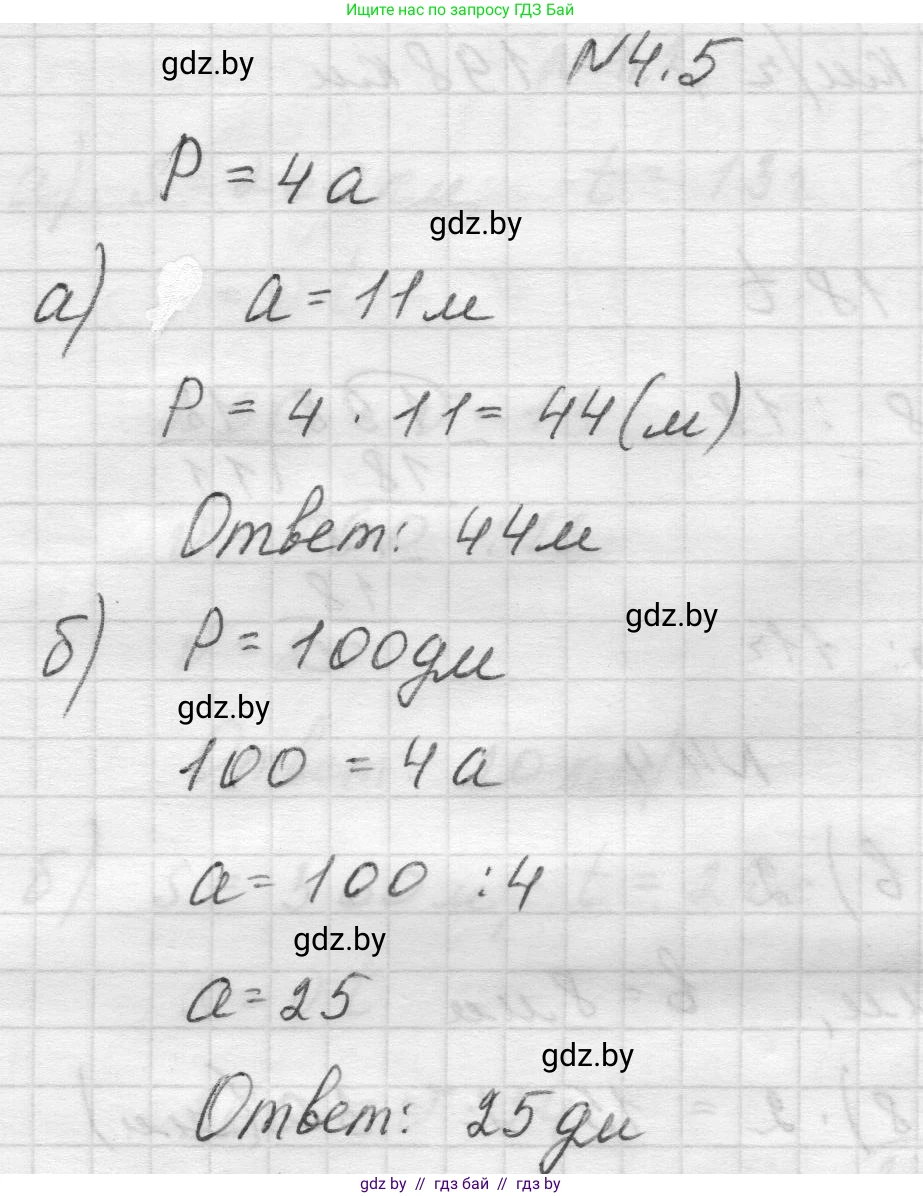 Ищите нас по запросу ГДЗ Бай
gdz.by
№4.5
P = 4a
gdz.by
а) a = 11 м
P = 4 · 11 = 44 (м)
Ответ: 44 м
gdz.by
б) P = 100 дм
gdz.by
100 = 4a
a = 100 : 4
gdz.by
a = 25
gdz.by
Ответ: 25 дм
gdz.by // гдз бай // гдз by